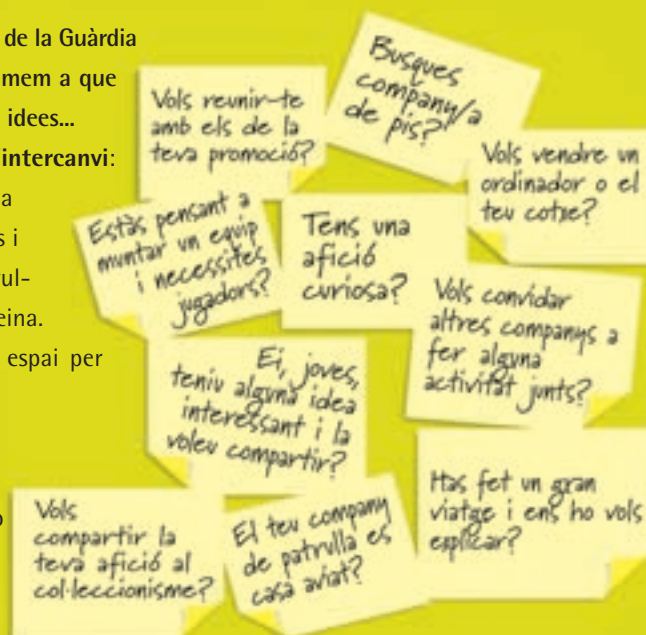 de la Guàrdia
mem a que
idees...
intercanvi:
a
s i
vul-
eina.
espai per
o
Busques
company/a
de pis?
Vols reunir-te
amb els de la
teva promoció?
Vols vendre un
ordinador o el
teu cotxe?
Estàs pensant a
muntar un equip
i necessites
jugadors?
Tens una
afició
curiosa?
Vols convidar
altres companys a
fer alguna
activitat junts?
Ei, joves,
teniu alguna idea
interessant i la
voleu compartir?
Has fet un gran
viatge i ens ho vols
explicar?
Vols
compartir la
teva afició al
col·leccionisme?
El teu company
de patrulla es
casa aviat?